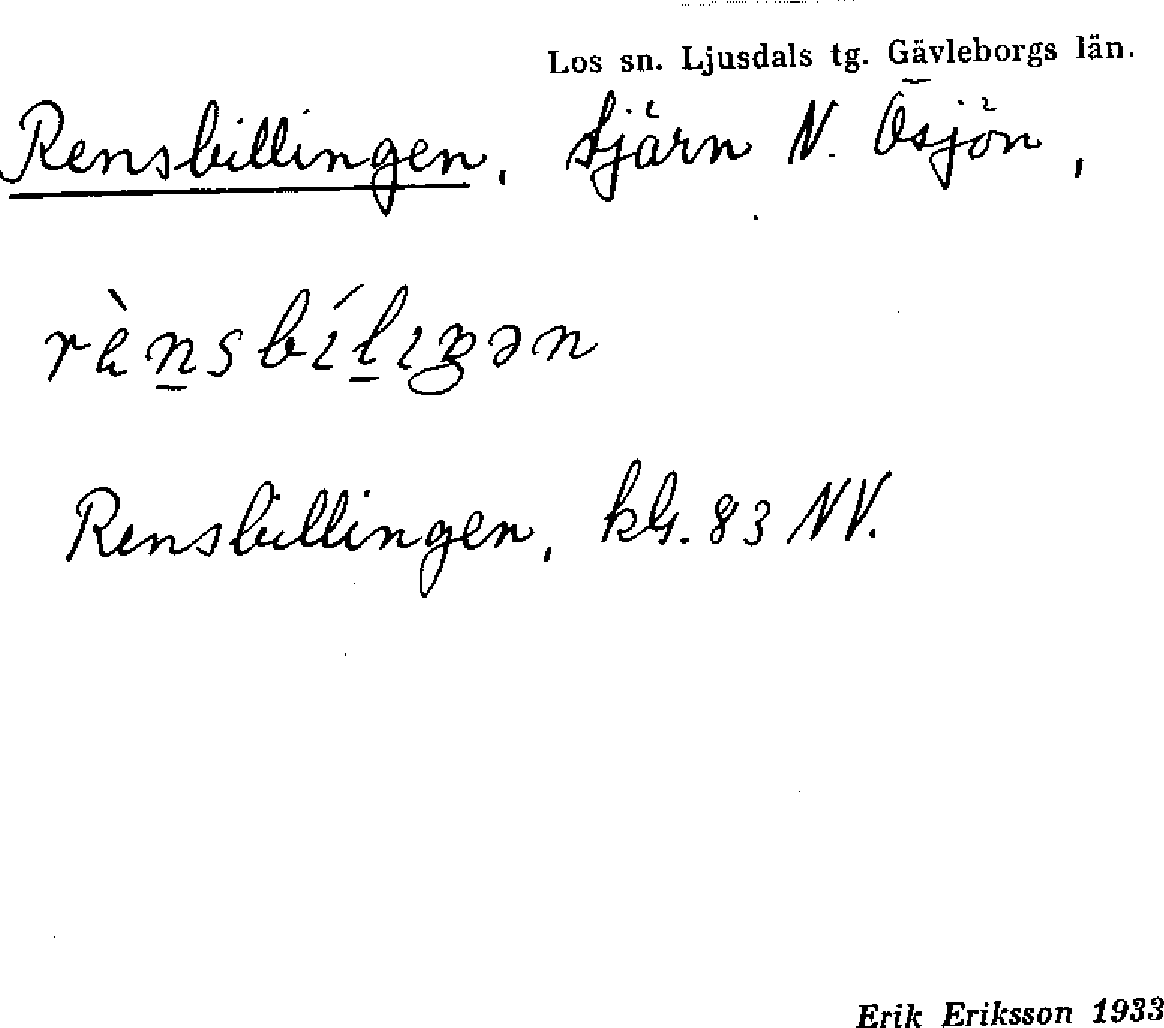 Los sn. Ljusdals tg. Gävleborgs län.
Rensbillingen, tjärn N. Ösjön,
rènsbílıŋən
Rensbillingen, kbl. 83 NV.
Erik Eriksson 1933